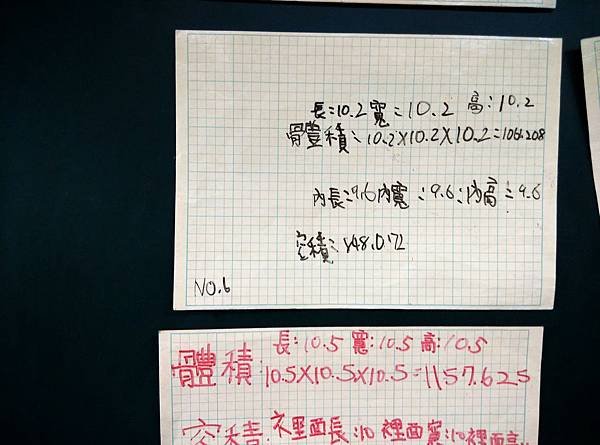 長:10.2寬:10.2 高:10.2
體積:10.2X10.2X10.2=1061.208
內長:9.6內寬:9.6:內高:9.6
容積:
NO.6
長:10.5 寬:10.5 高:10.5
體積:10.5X10.5X10.5=1157.625
容積:裡面長:10 裡面寬:10裡面高: